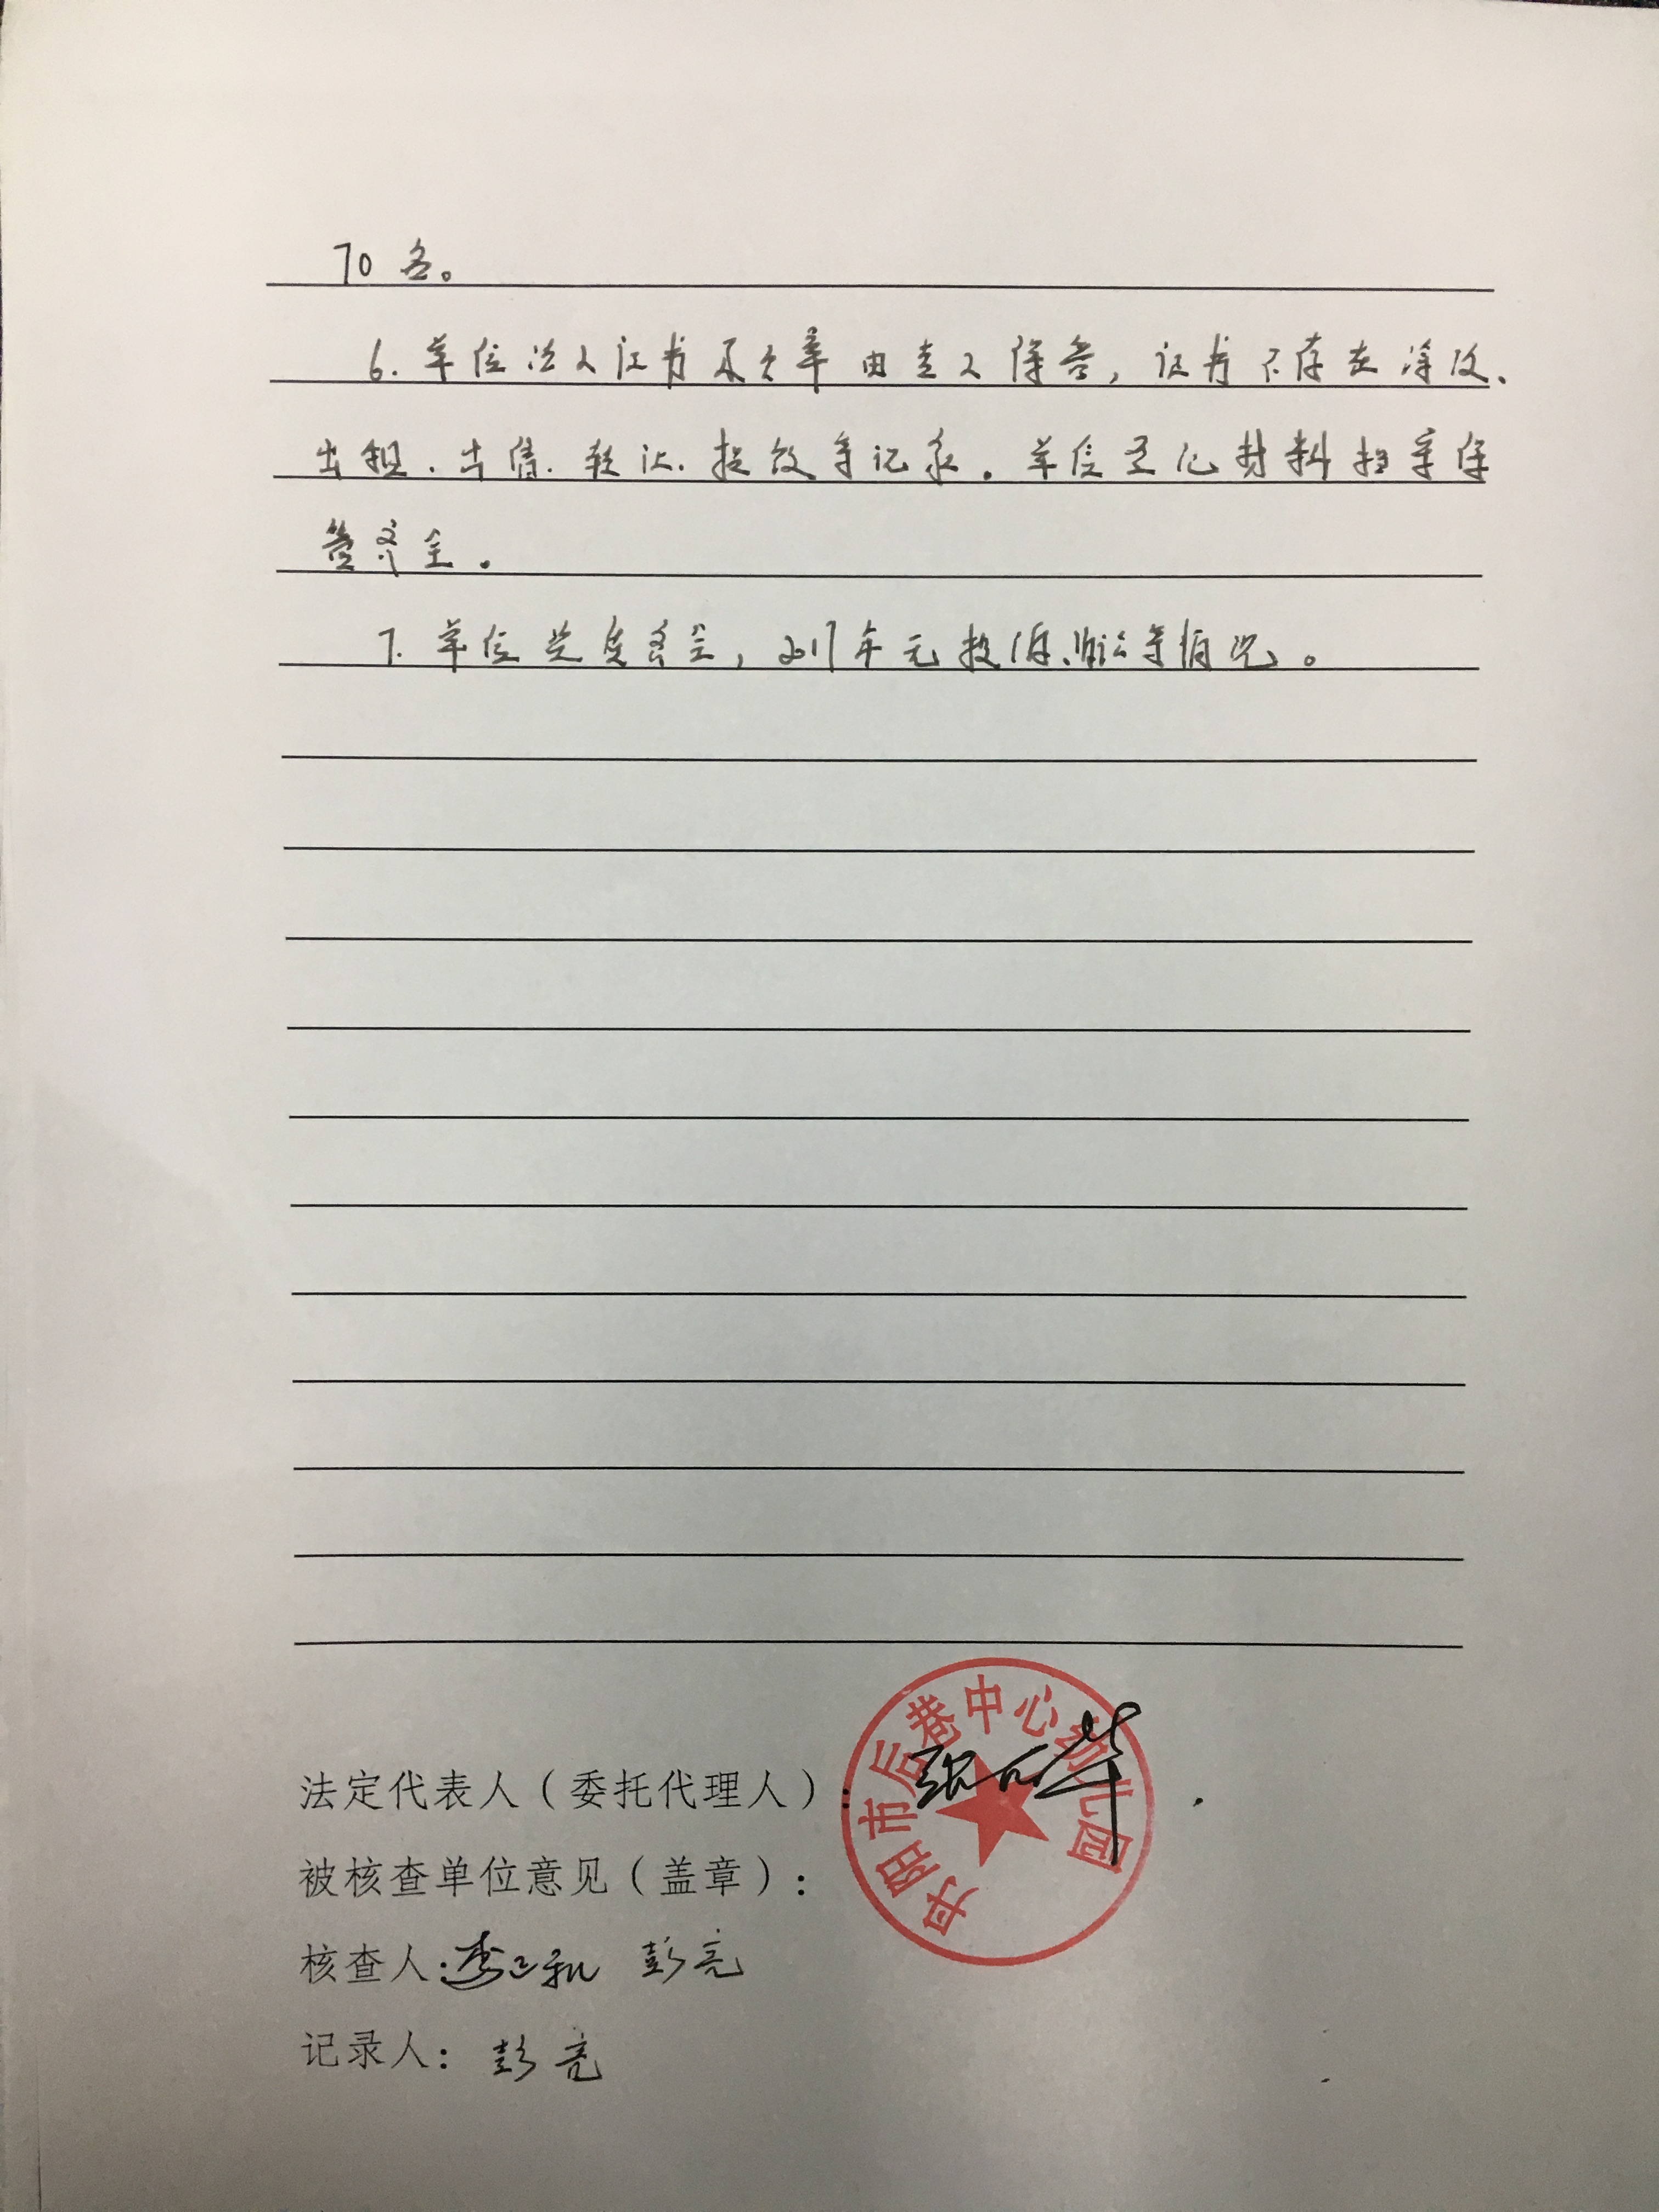 70名。
6.单位法人证书及公章由专人保管,证书不存在涂改、
出租、出借、转让、损毁等记录。单位登记材料档案保
管齐全。
7.单位制度健全,2017年无投诉、诉讼等情况。
丹阳市后巷中心幼儿园
法定代表人(委托代理人):
被核查单位意见(盖章):
核查人: 彭亮
记录人:彭亮